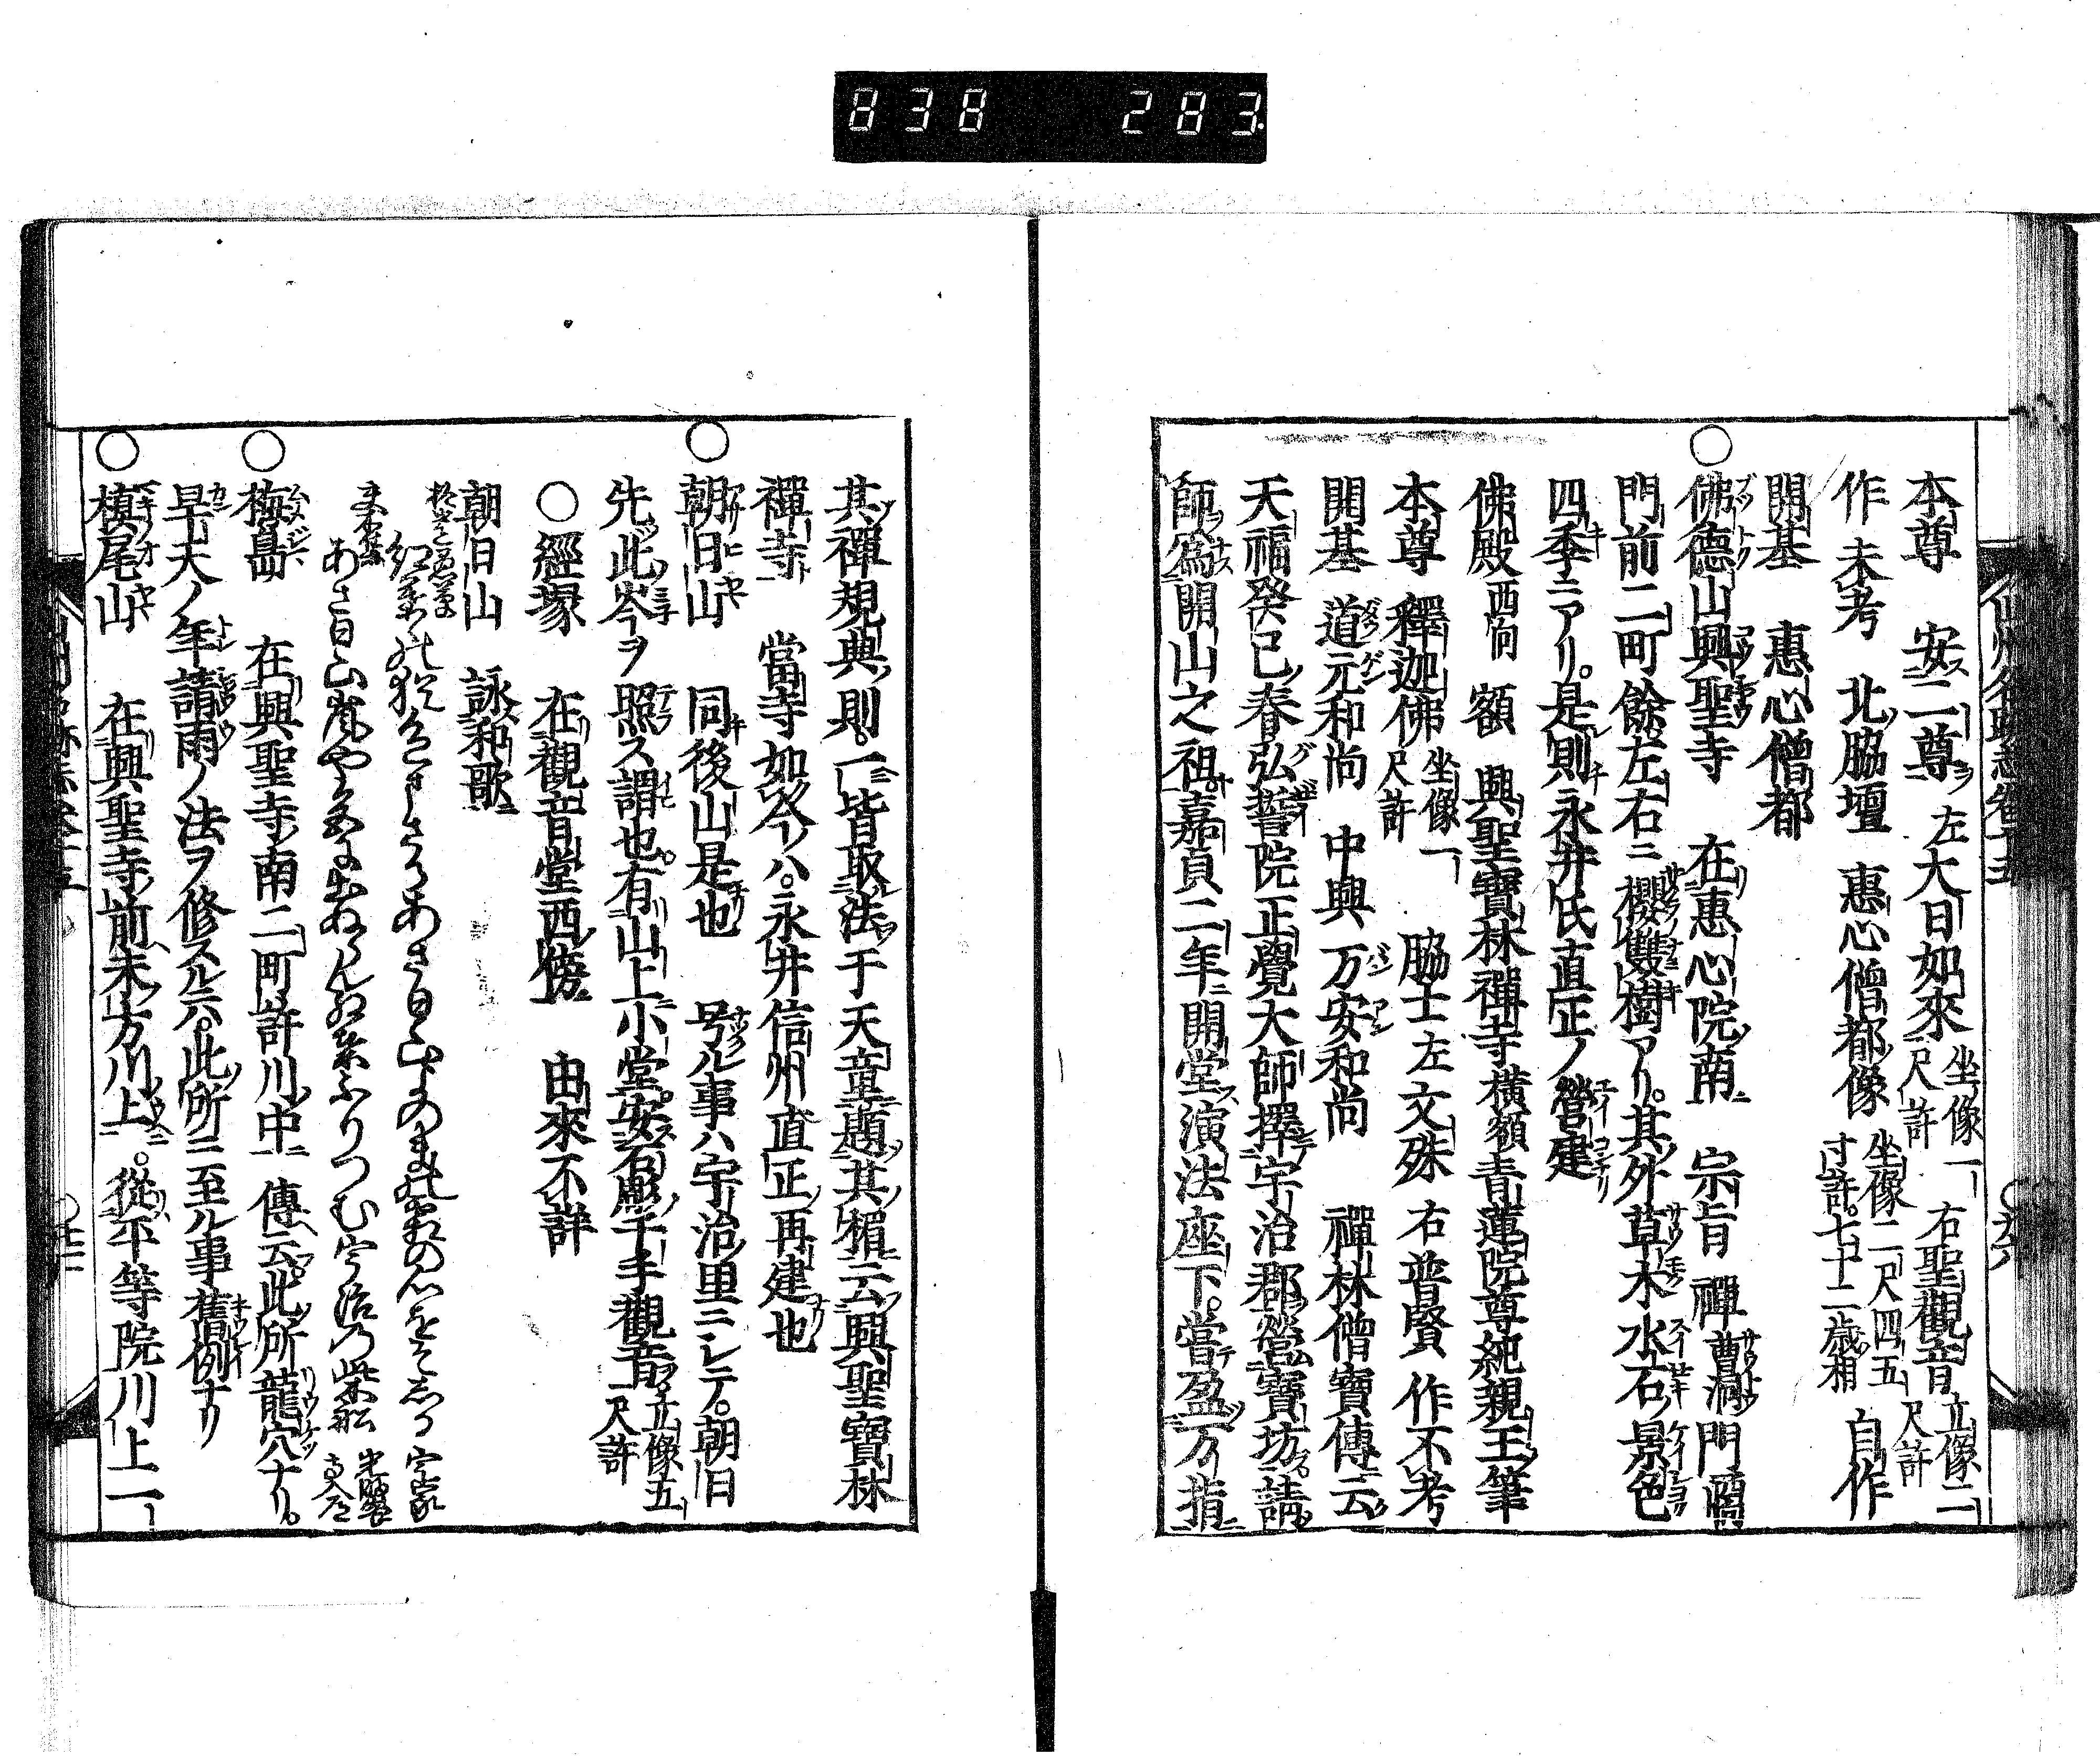 838 283
本尊 安二尊 左大日如來 坐像一尺許 右聖觀音 立像二尺許
作 未考 北脇壇 惠心僧都像 坐像二尺四五寸許。七十二歳相 自作
開基 惠心僧都
○佛德山興聖寺 在惠心院南 宗旨 禪曹洞門
門前二町餘。左右ニ櫻雙樹アリ。其外草木水石ノ景色
四季ニアリ。是則永井氏直正ノ營建
佛殿 西向 額 興聖寶林禪寺 横額青蓮院尊純親王筆
本尊 釋迦佛 坐像一尺許 脇士左文殊 右普賢 作不考
開基 道元和尚 中興 万安和尚 禪林僧寶傳云
天福癸巳春弘誓院正覺大師擇宇治郡營寶坊請
師爲開山之祖嘉貞二年開堂演法座下。嘗盈万指
其禪規典則。一皆取法于天童題其楣云興聖寶林
禪寺 當寺如今ハ。永井信州直正再建也
○朝日山 同後山是也 号ル事ハ宇治里ニシテ。朝日
先此岑ヲ照ス謂也。有山上小堂。安石彫千手觀音。立像五尺許
○經塚 在觀音堂西傍 由來不詳
朝日山 詠和歌
あさ日山
○梅島 在興聖寺南二町許川中 傳云此所龍穴ナリ。
旱天ノ年請雨ノ法ヲ修スル六。此所ニ至ル事舊例ナリ
○槙尾山 在興聖寺前未方川上。從平等院川上一